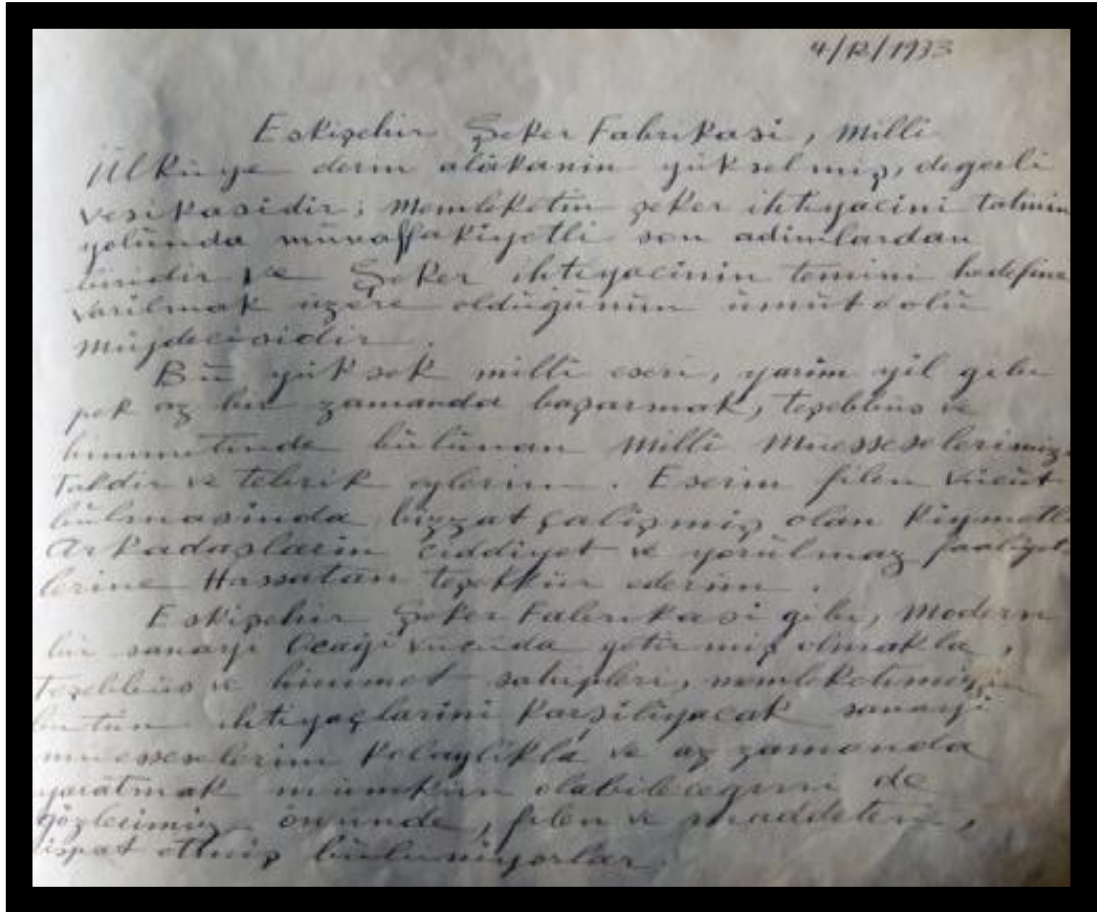 4/12/1933
Eskişehir Şeker Fabrikasi, milli
Ülküye derin alâkanin yükselmiş, degerli
vesikasidir; Memleketin şeker ihtiyacini tatmin
yolünda müvaffakiyetli son adimlardan
biridir ve Şeker ihtiyacinin temini hedefine
varilmak üzere oldüğünün ümüt dolü
müjdecisidir.
Bü yüksek milli eseri, yarim yil gibi
pek az bir zamanda başarmak, teşebbüs ve
himmetinde bülünan milli müesseselerimizi
Takdir ve tebrik eylerim. Eserin filen vücüt
bülmasinda bizzat çalişmiş olan kiymetli
Arkadaşlarin ciddiyet ve yorülmaz faaliyet
lerine Hassatan teşekkür ederim.
Eskişehir Şeker Fabrikasi gibi, modern
bir sanayi Ocaği vücüda getirmiş olmakla,
Teşebbüs ve himmet sahipleri, memleketimizin
bütün ihtiyaçlarini karşiliyacak sanayi
müesseselerini kolaylikla ve az zamanda
yaratmak mümkün olabilecegini de
gözlerimiz önünde, filen ve maddeten,
ispat etmiş bülüniyorlar.